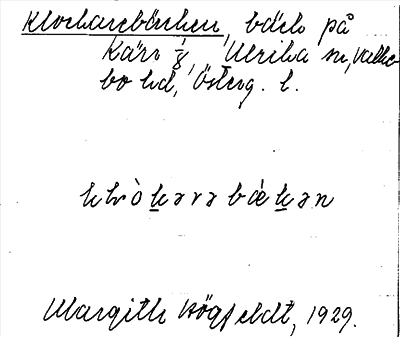 Klockarebäcken, bäck på
Kärr 1/8, Ulrika sn, Valke-
bo hd, Österg. l.
klòkərəbækən
Margith Högfeldt, 1929.